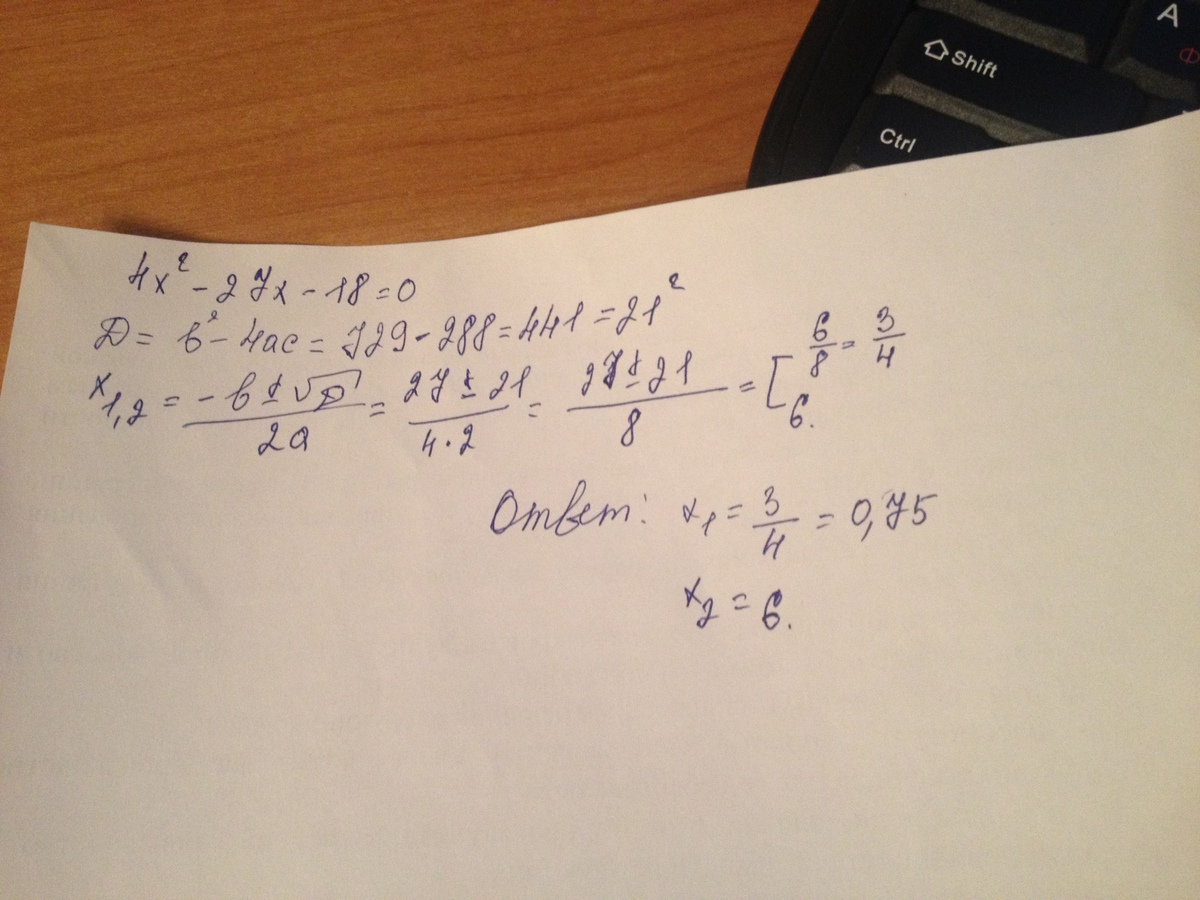 Shift
A
Ф
Ctrl
4x² - 27x - 18 = 0
D = b² - 4ac = 729 - 288 = 441 = 21²
x₁,₂ = (-b ± √D)/(2a) = (27 ± 21)/(4·2) = (27 ± 21)/8 = [6/8 = 3/4
6.
Ответ: x₁ = 3/4 = 0,75
x₂ = 6.